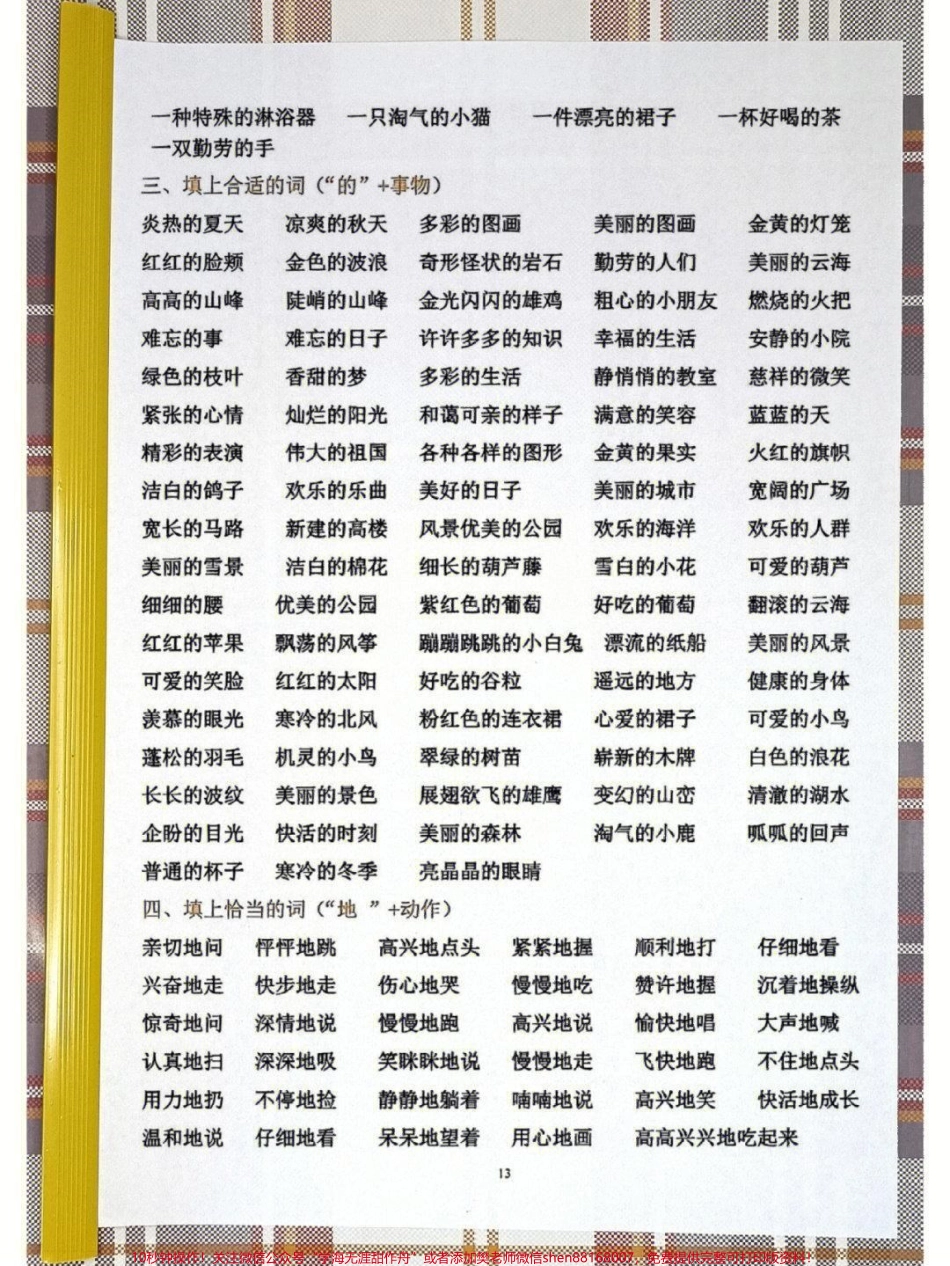 一种特殊的淋浴器 一只淘气的小猫 一件漂亮的裙子 一杯好喝的茶
一双勤劳的手
三、填上合适的词（“的”+事物）
炎热的夏天 凉爽的秋天 多彩的图画 美丽的图画 金黄的灯笼
红红的脸颊 金色的波浪 奇形怪状的岩石 勤劳的人们 美丽的云海
高高的山峰 陡峭的山峰 金光闪闪的雄鸡 粗心的小朋友 燃烧的火把
难忘的事 难忘的日子 许许多多的知识 幸福的生活 安静的小院
绿色的枝叶 香甜的梦 多彩的生活 静悄悄的教室 慈祥的微笑
紧张的心情 灿烂的阳光 和蔼可亲的样子 满意的笑容 蓝蓝的天
精彩的表演 伟大的祖国 各种各样的图形 金黄的果实 火红的旗帜
洁白的鸽子 欢乐的乐曲 美好的日子 美丽的城市 宽阔的广场
宽长的马路 新建的高楼 风景优美的公园 欢乐的海洋 欢乐的人群
美丽的雪景 洁白的棉花 细长的葫芦藤 雪白的小花 可爱的葫芦
细细的腰 优美的公园 紫红色的葡萄 好吃的葡萄 翻滚的云海
红红的苹果 飘荡的风筝 蹦蹦跳跳的小白兔 漂流的纸船 美丽的风景
可爱的笑脸 红红的太阳 好吃的谷粒 遥远的地方 健康的身体
羡慕的眼光 寒冷的北风 粉红色的连衣裙 心爱的裙子 可爱的小鸟
蓬松的羽毛 机灵的小鸟 翠绿的树苗 崭新的木牌 白色的浪花
长长的波纹 美丽的景色 展翅欲飞的雄鹰 变幻的山峦 清澈的湖水
企盼的目光 快活的时刻 美丽的森林 淘气的小鹿 呱呱的回声
普通的杯子 寒冷的冬季 亮晶晶的眼睛
四、填上恰当的词（“地 ”+动作）
亲切地问 怦怦地跳 高兴地点头 紧紧地握 顺利地打 仔细地看
兴奋地走 快步地走 伤心地哭 慢慢地吃 赞许地握 沉着地操纵
惊奇地问 深情地说 慢慢地跑 高兴地说 愉快地唱 大声地喊
认真地扫 深深地吸 笑眯眯地说 慢慢地走 飞快地跑 不住地点头
用力地扔 不停地捡 静静地躺着 喃喃地说 高兴地笑 快活地成长
温和地说 仔细地看 呆呆地望着 用心地画 高高兴兴地吃起来
13
10秒钟操作！关注微信公众号“学海无涯甜作舟”或者添加樊老师微信shen88168007，免费提供完整可打印版资料！